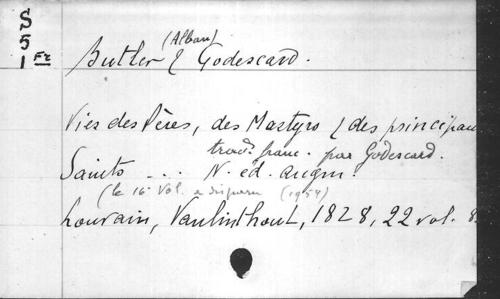 S
5
1 Fr
(Alban)
Butler & Godescard.
Vies des Pères, des Martyrs & des principau
trad. franc. par Godescard.
Saints ... N. éd. augm.
(le 16 Vol. a disparu (1954)
Louvain, Vanlinthout, 1828, 22 vol. 8